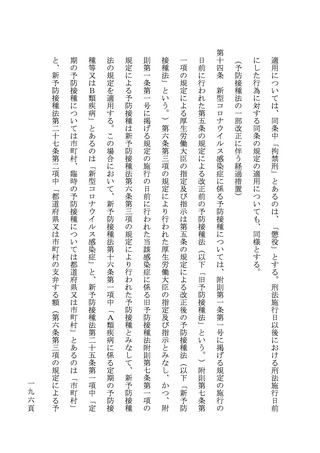 適用については、同条中「拘禁刑」とあるのは、「懲役」とする。刑法施行日以後における刑法施行日前
にした行為に対する同条の規定の適用についても、同様とする。
（予防接種法の一部改正に伴う経過措置）
第十四条　新型コロナウイルス感染症に係る予防接種については、附則第一条第一号に掲げる規定の施行の
日前に行われた第五条の規定による改正前の予防接種法（以下「旧予防接種法」という。）附則第七条第
一項の規定による厚生労働大臣の指定及び指示は第五条の規定による改正後の予防接種法（以下「新予防
接種法」という。）第六条第三項の規定により行われた厚生労働大臣の指定及び指示とみなし、かつ、附
則第一条第一号に掲げる規定の施行の日前に行われた当該感染症に係る旧予防接種法附則第七条第一項の
規定による予防接種は新予防接種法第六条第三項の規定により行われた予防接種とみなして、新予防接種
法の規定を適用する。この場合において、新予防接種法第十六条第一項中「Ａ類疾病に係る定期の予防接
種等又はＢ類疾病」とあるのは「新型コロナウイルス感染症」と、新予防接種法第二十五条第一項中「定
期の予防接種については市町村、臨時の予防接種については都道府県又は市町村」とあるのは「市町村」
と、新予防接種法第二十七条第二項中「都道府県又は市町村の支弁する額（第六条第三項の規定による予
一九六頁